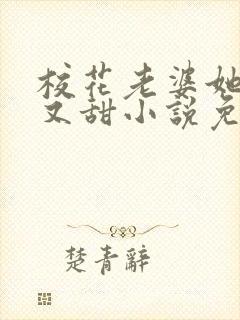 校花老婆她
又甜小說免
楚青辭